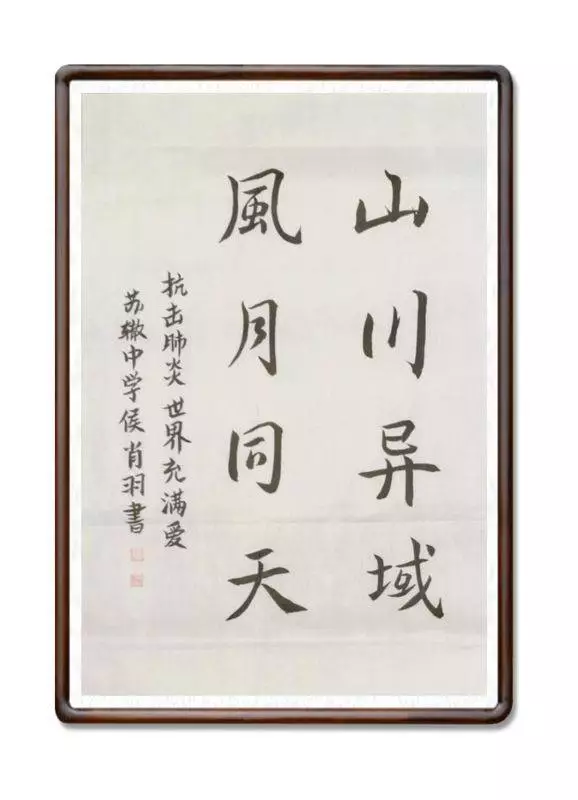 山川异域
風月同天
抗击肺炎 世界充满爱
苏辙中学侯肖羽書